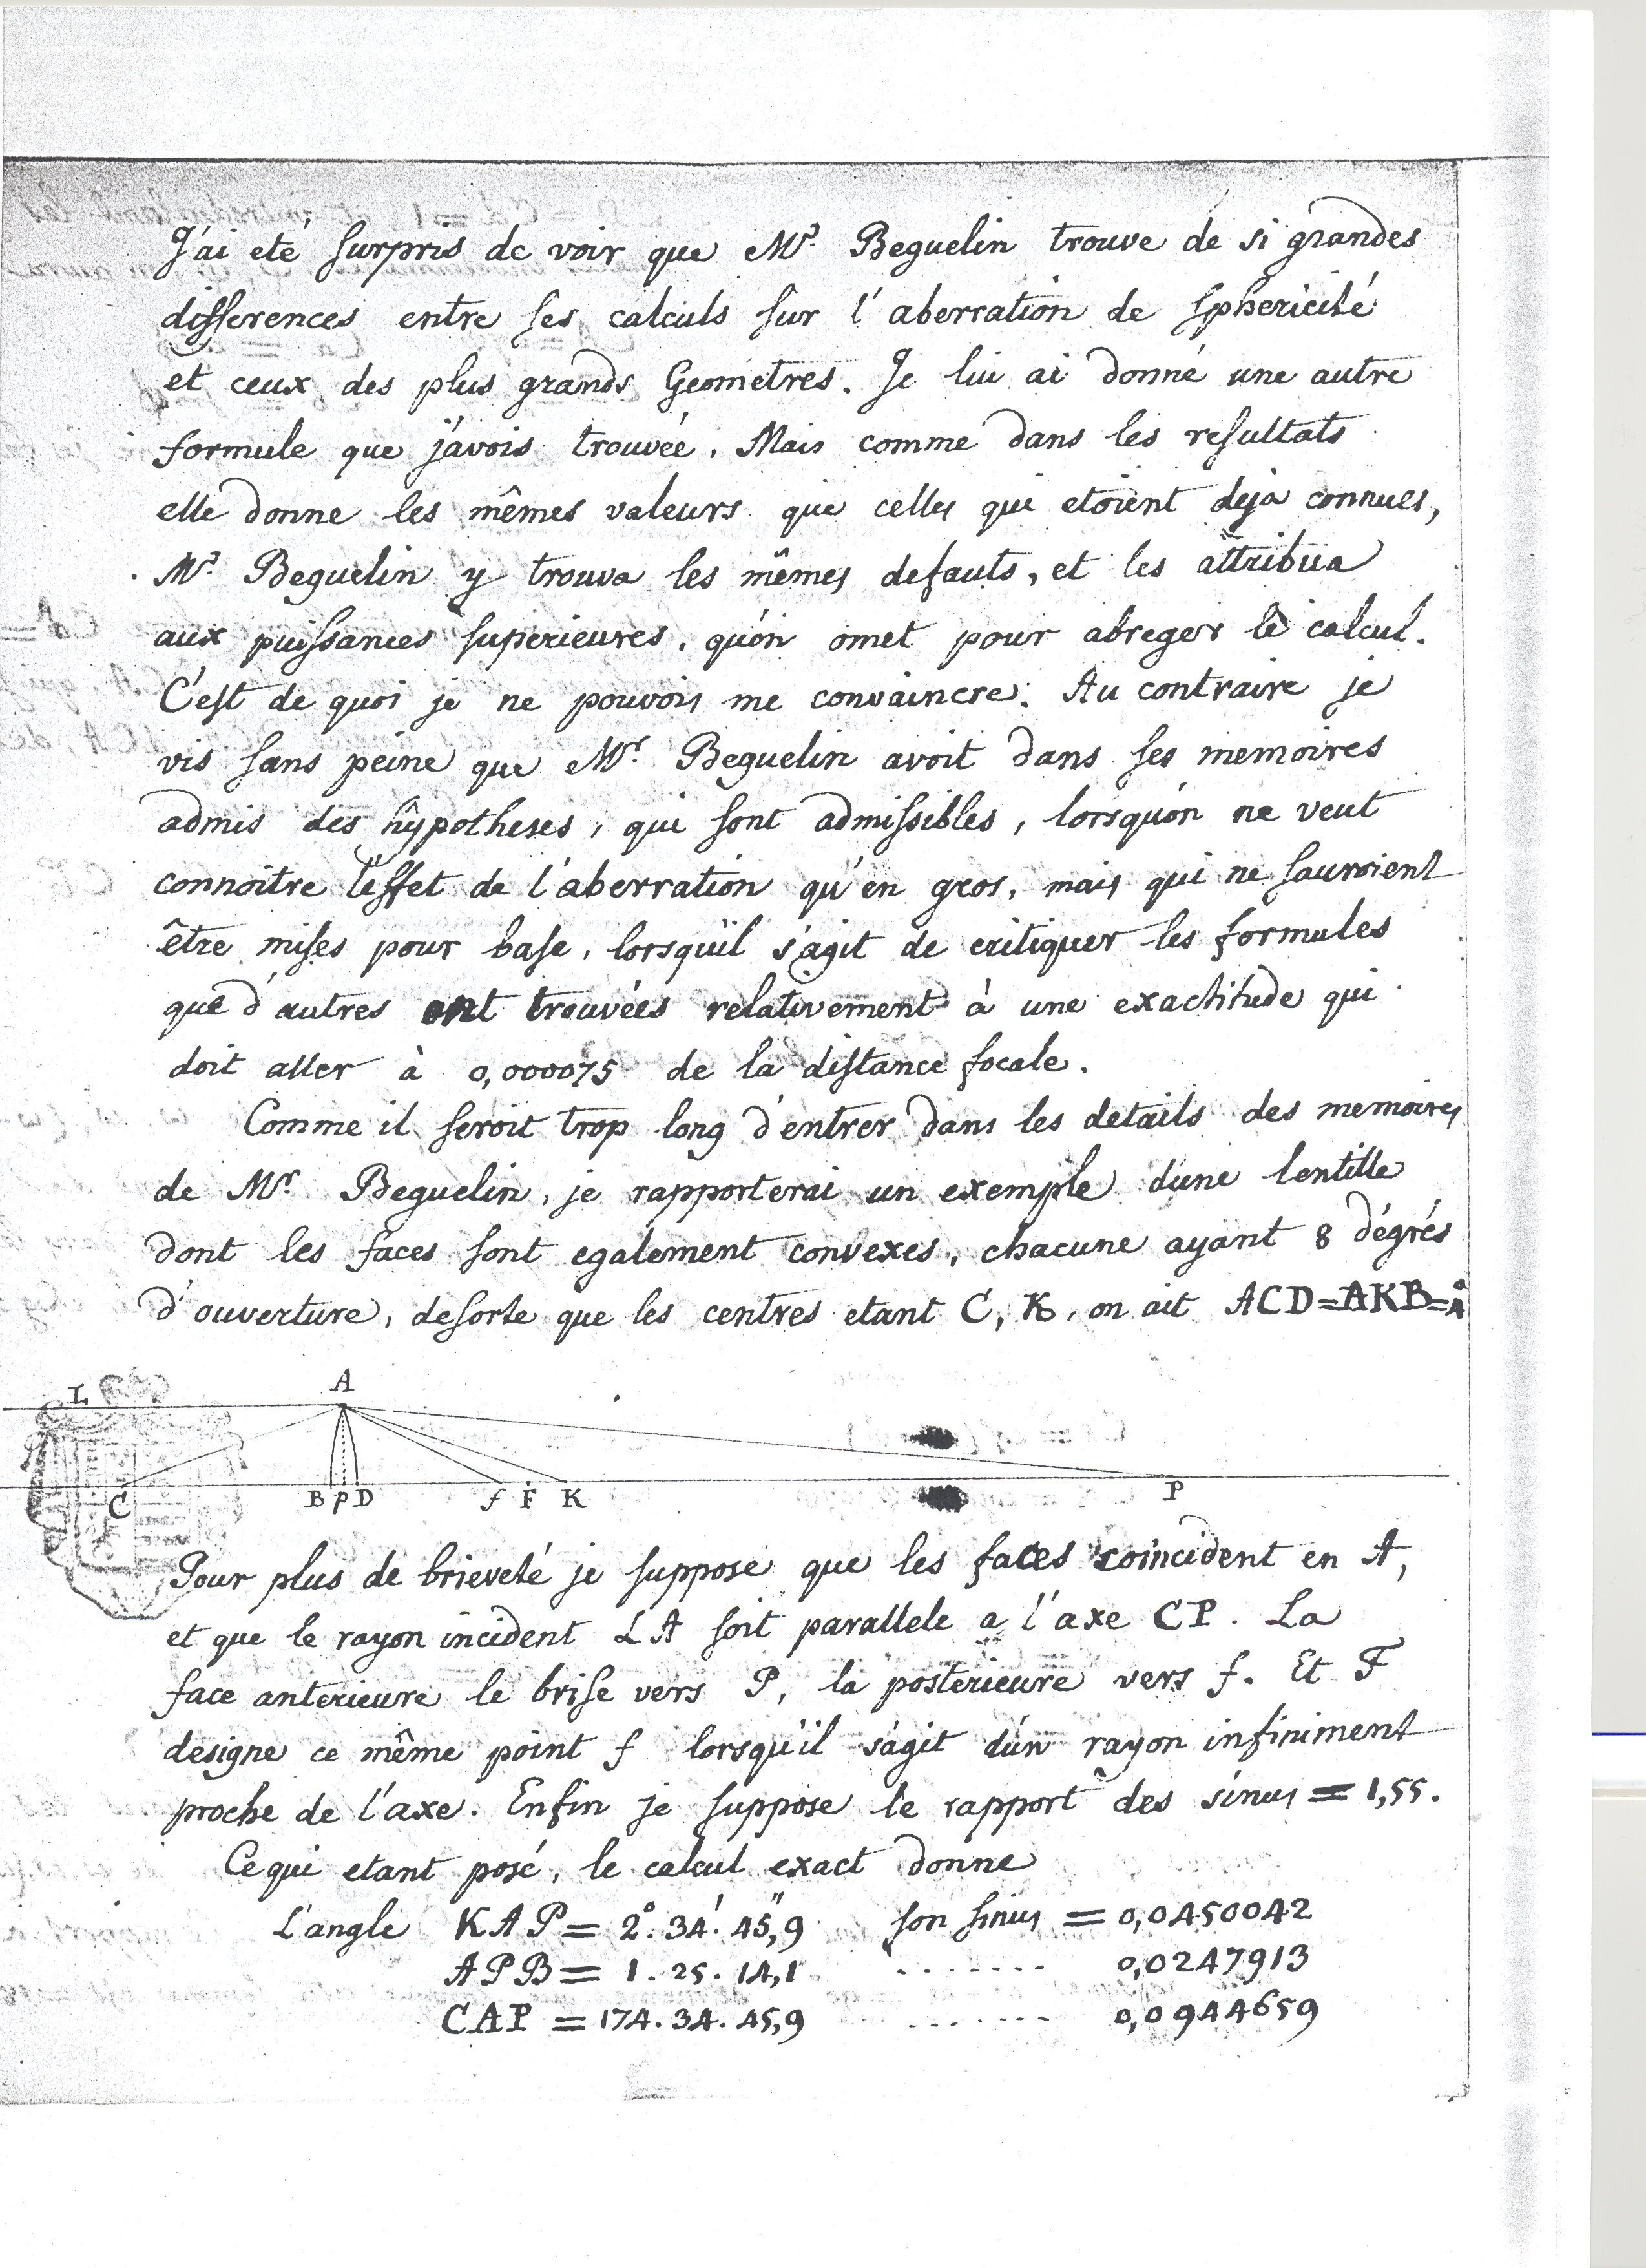 J'ai eté surpris de voir que Mr. Beguelin trouve de si grandes
differences entre ses calculs sur l'aberration de sphericité
et ceux des plus grands Geometres. Je lui ai donné une autre
formule que j'avois trouvée. Mais comme dans les resultats
elle donne les mêmes valeurs que celles qui etoient deja connues,
Mr. Beguelin y trouva les mêmes defauts, et les attribua
aux puissances superieures, qu'on omet pour abreger le calcul.
C'est de quoi je ne pouvois me convaincre. Au contraire je
vis sans peine que Mr. Beguelin avoit dans ses memoires
admis des hypotheses, qui sont admissibles, lorsqu'on ne veut
connoitre l'effet de l'aberration qu'en gros, mais qui ne sauroient
être mises pour base, lorsqu'il s'agit de critiquer les formules
que d'autres ont trouvées relativement à une exactitude qui
doit aller à 0,000075 de la distance focale.
Comme il seroit trop long d'entrer dans les details des memoires
de Mr. Beguelin, je rapporterai un exemple d'une lentille
dont les faces sont egalement convexes, chacune ayant 8 dégrés
d'ouverture, desorte que les centres etant C, K, on ait ACD=AKB=4°
L A
C B p D f F K P
Pour plus de brieveté je suppose que les faces coincident en A,
et que le rayon incident LA soit parallele a l'axe CP. La
face anterieure le brise vers P, la posterieure vers f. Et F
designe ce même point f lorsqu'il s'agit d'un rayon infiniment
proche de l'axe. Enfin je suppose le rapport des sinus = 1,55.
Ce qui etant posé, le calcul exact donne
L'angle KAP = 2°. 34'. 45",9 son sinus = 0,0450042
APB = 1. 25. 14,1 ....... 0,0247913
CAP = 174. 34. 45,9 ....... 0,0944659